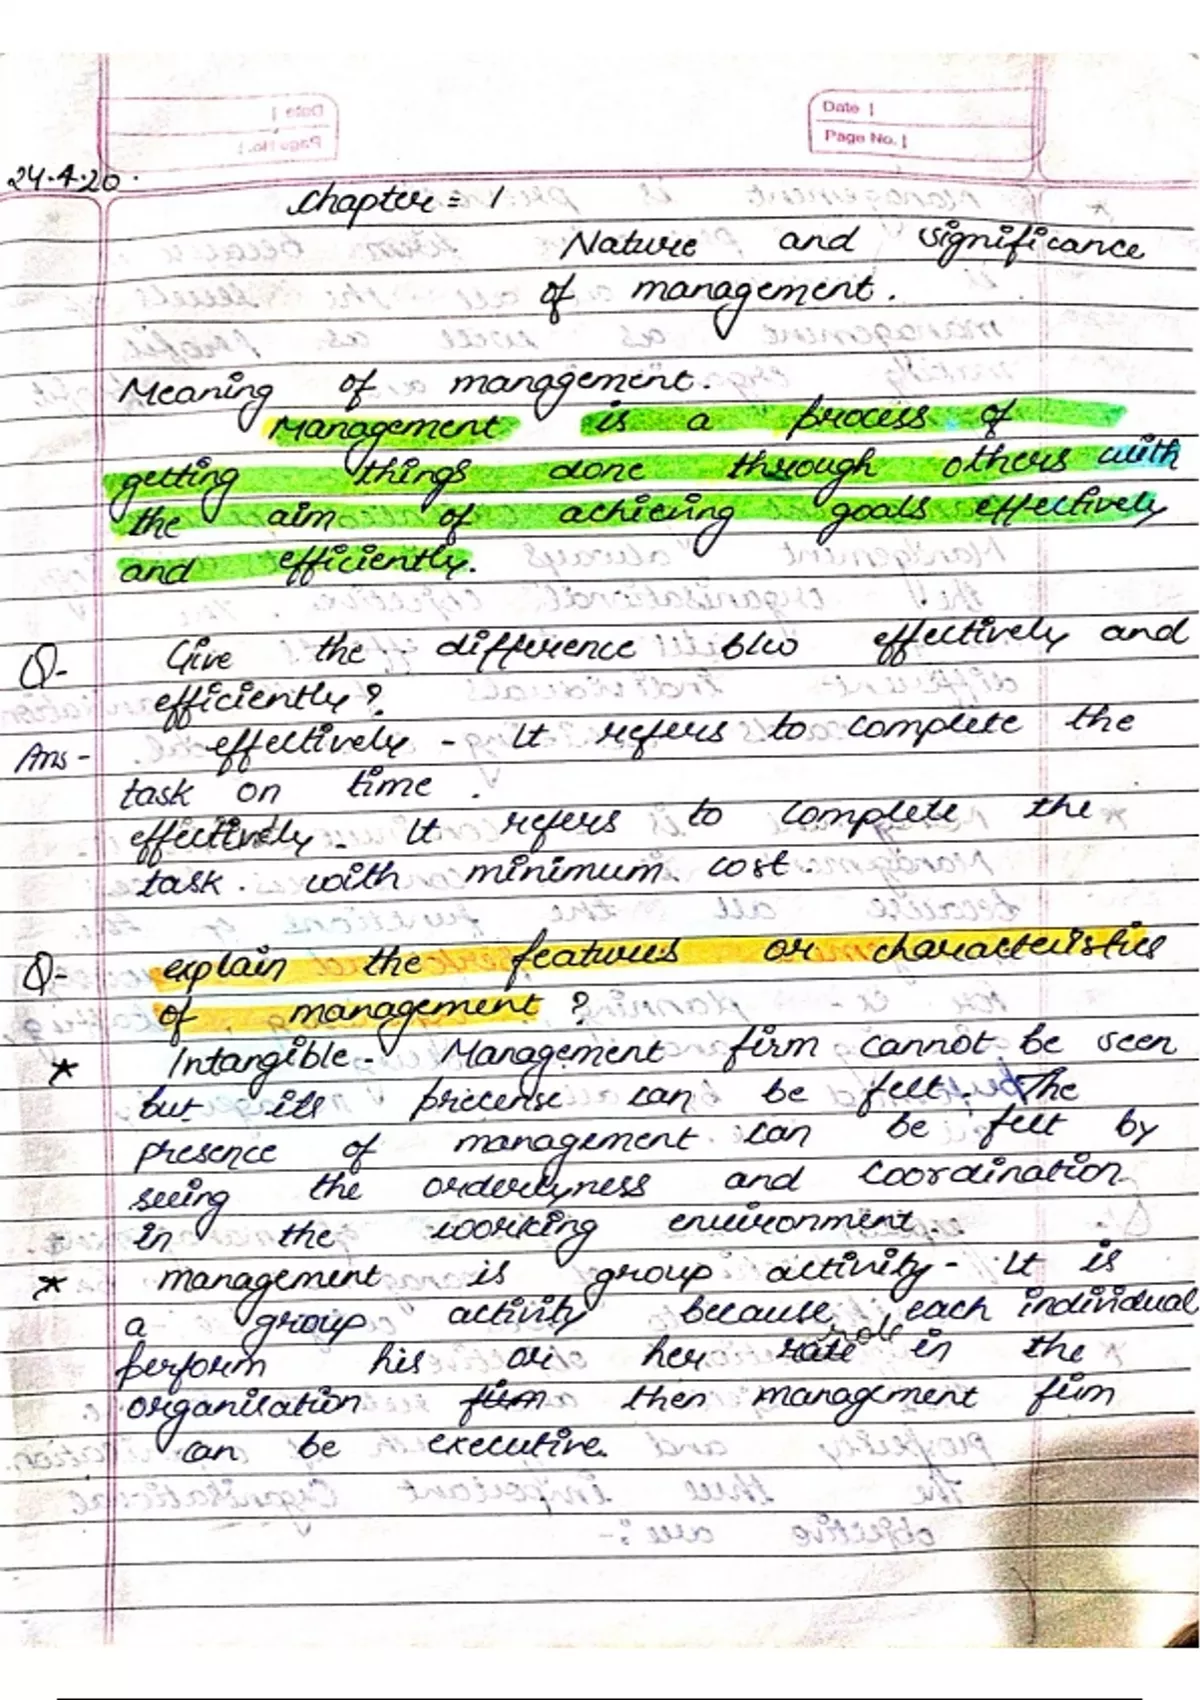 Date
Page No.
24.4.20.
chapter = 1
Nature and significance
of management.
Meaning of management.
Management is a process of
getting things done through others with
the aim of achieving goals effectively
and efficiently.
Q- Give the difference b/w effectively and
efficiently?
Ans- effectively - It refers to complete the
task on time.
effectively - It refers to complete the
task. with minimum cost.
Q- explain the features or characteristics
of management ?
* Intangible - Management firm cannot be seen
but its precense can be felt. The
presence of management can be felt by
seeing the orderlyness and coordination
in the working environment.
* management is group activity - It is
a group activity because each individual
perform his or her role in the
organisation then management firm
can be executive.